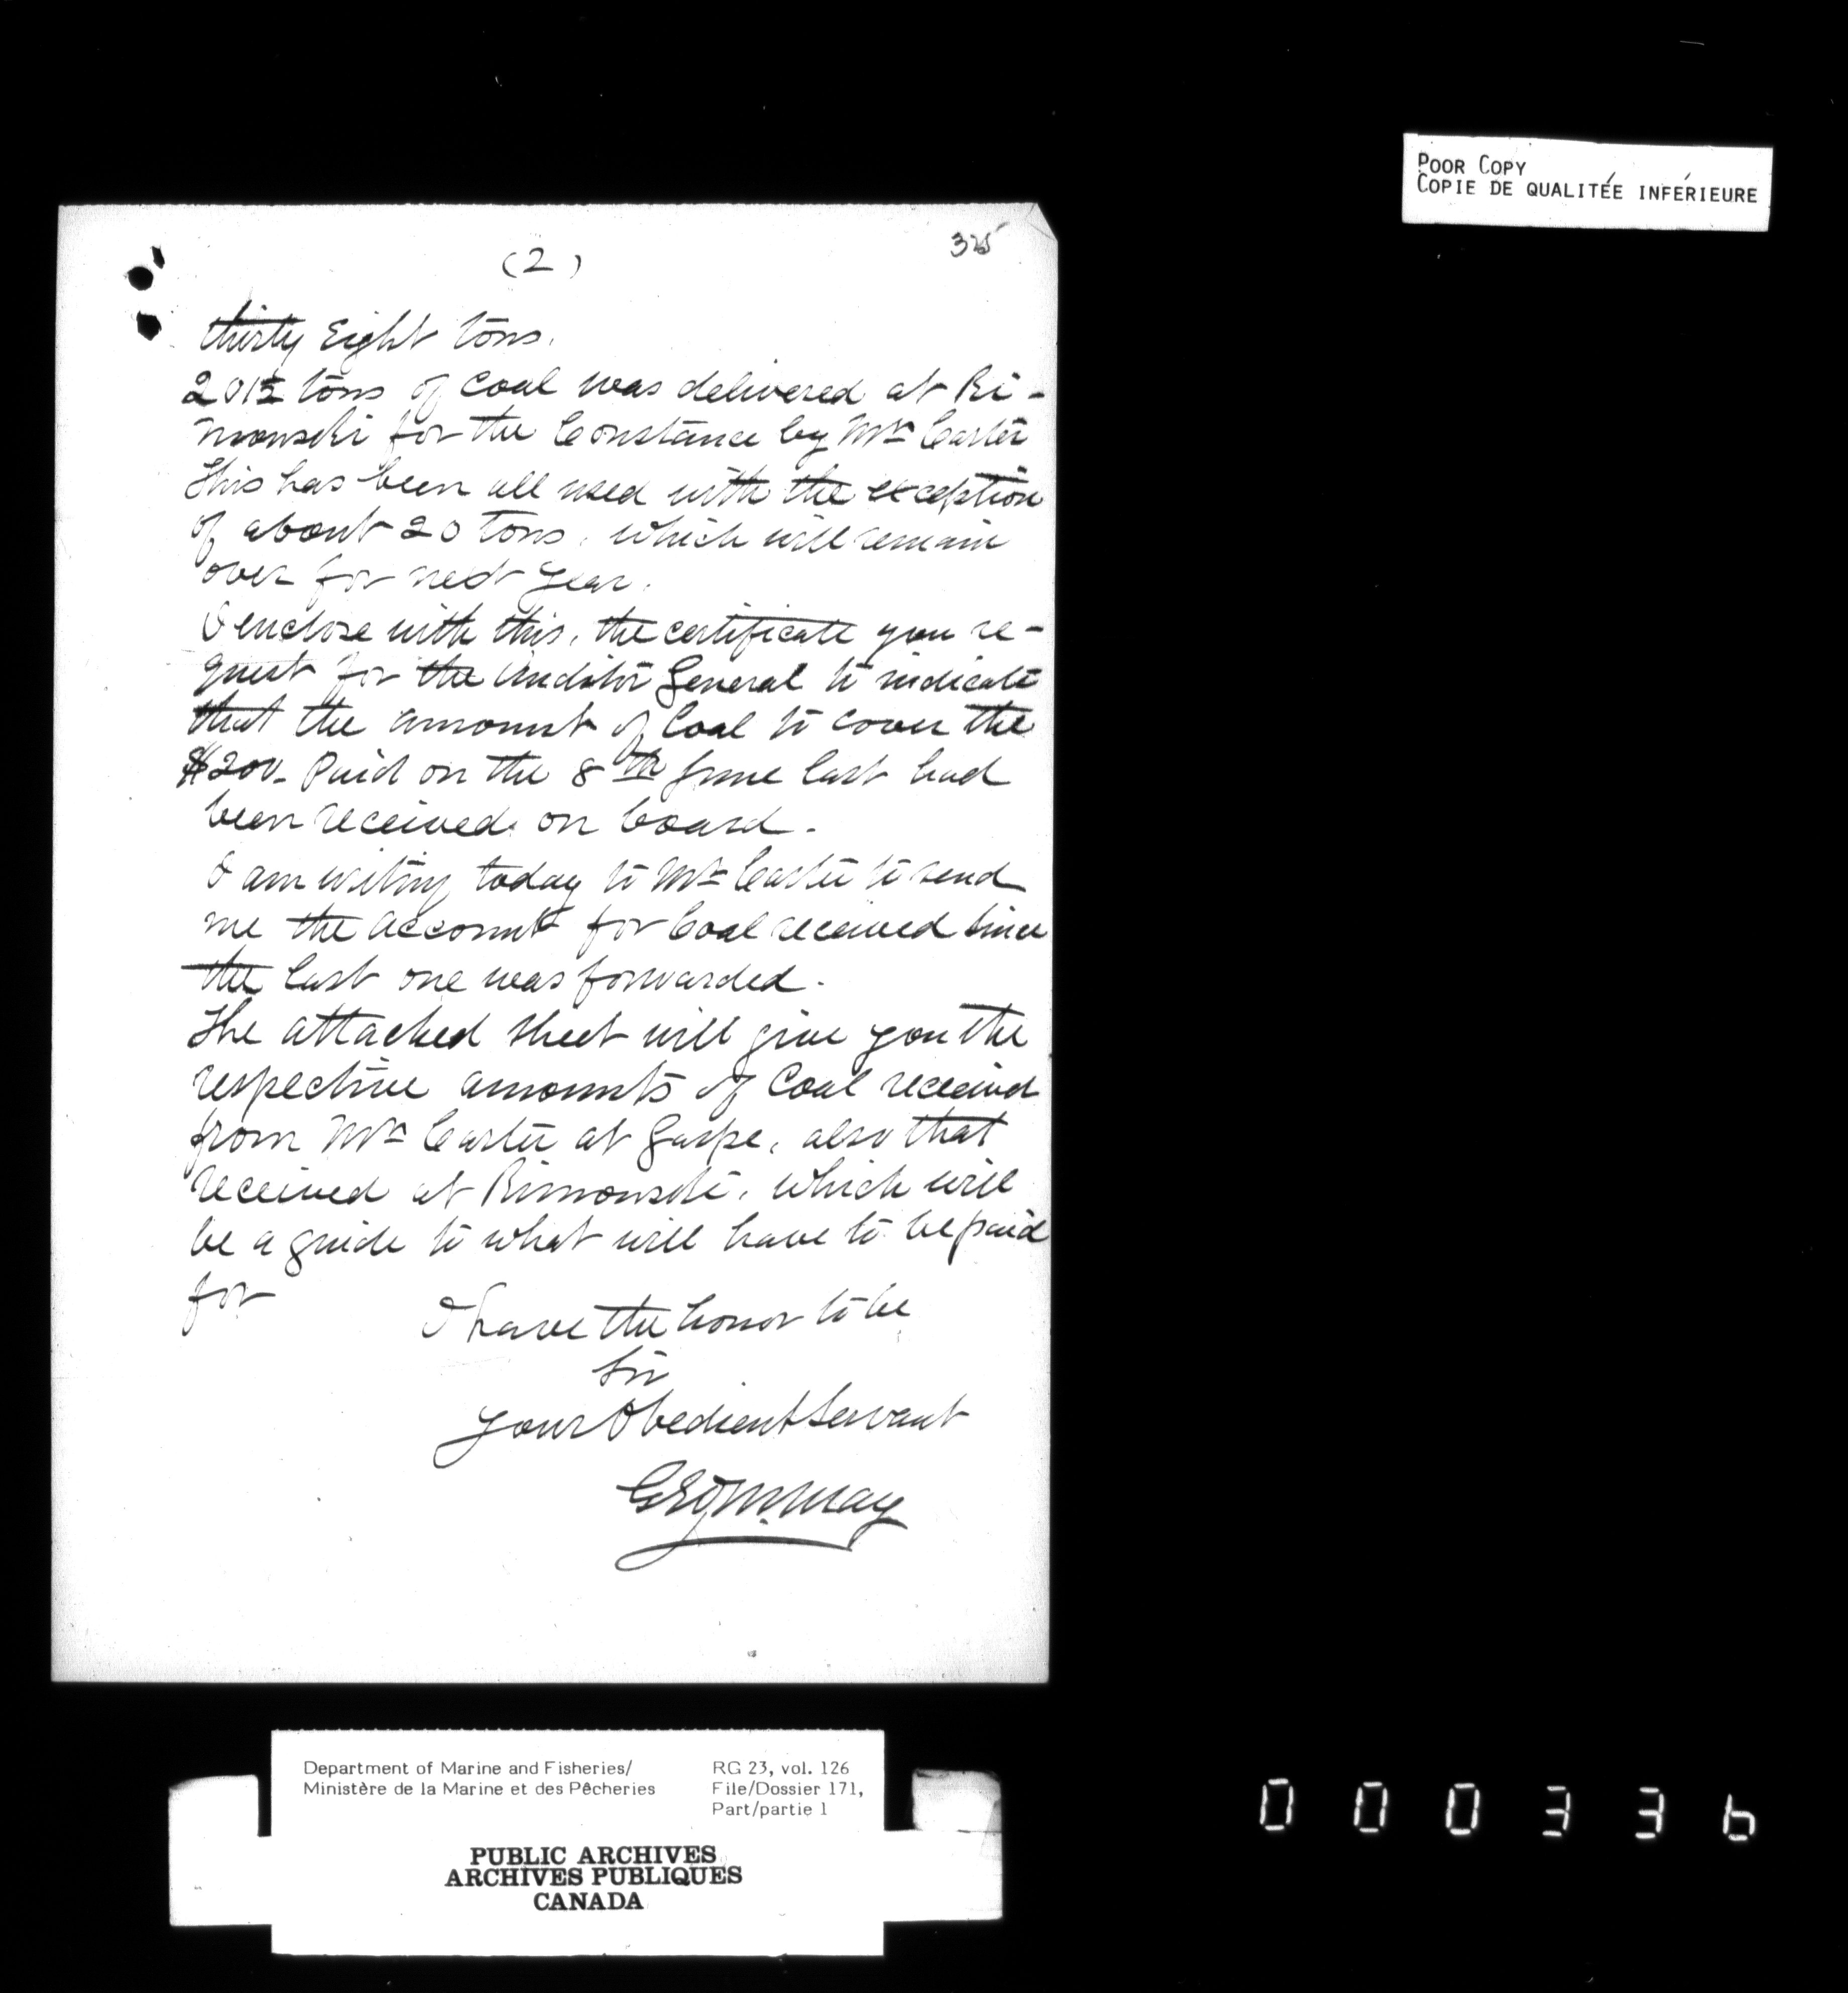 POOR COPY
COPIE DE QUALITÉE INFÉRIEURE
325
(2)
thirty Eight tons.
201½ tons of Coal was delivered at Ri-
mouski for the Constance by Mr Carter
This has been all used with the exception
of about 20 tons, which will remain
over for next year.
I enclose with this, the certificate you re-
quest for the Auditor General to indicate
that the amount of Coal to cover the
$200- Paid on the 8th June last had
been received on board.
I am writing today to Mr Carter to send
me the account for Coal received since
the last one was forwarded.
The attached sheet will give you the
respective amounts of Coal received
from Mr Carter at Gaspe, also that
received at Rimouski, which will
be a guide to what will have to be paid
for
I have the honor to be
Sir
your Obedient Servant
Geo M. May
Department of Marine and Fisheries/
Ministère de la Marine et des Pêcheries
RG 23, vol. 126
File/Dossier 171,
Part/partie 1
PUBLIC ARCHIVES
ARCHIVES PUBLIQUES
CANADA
000336